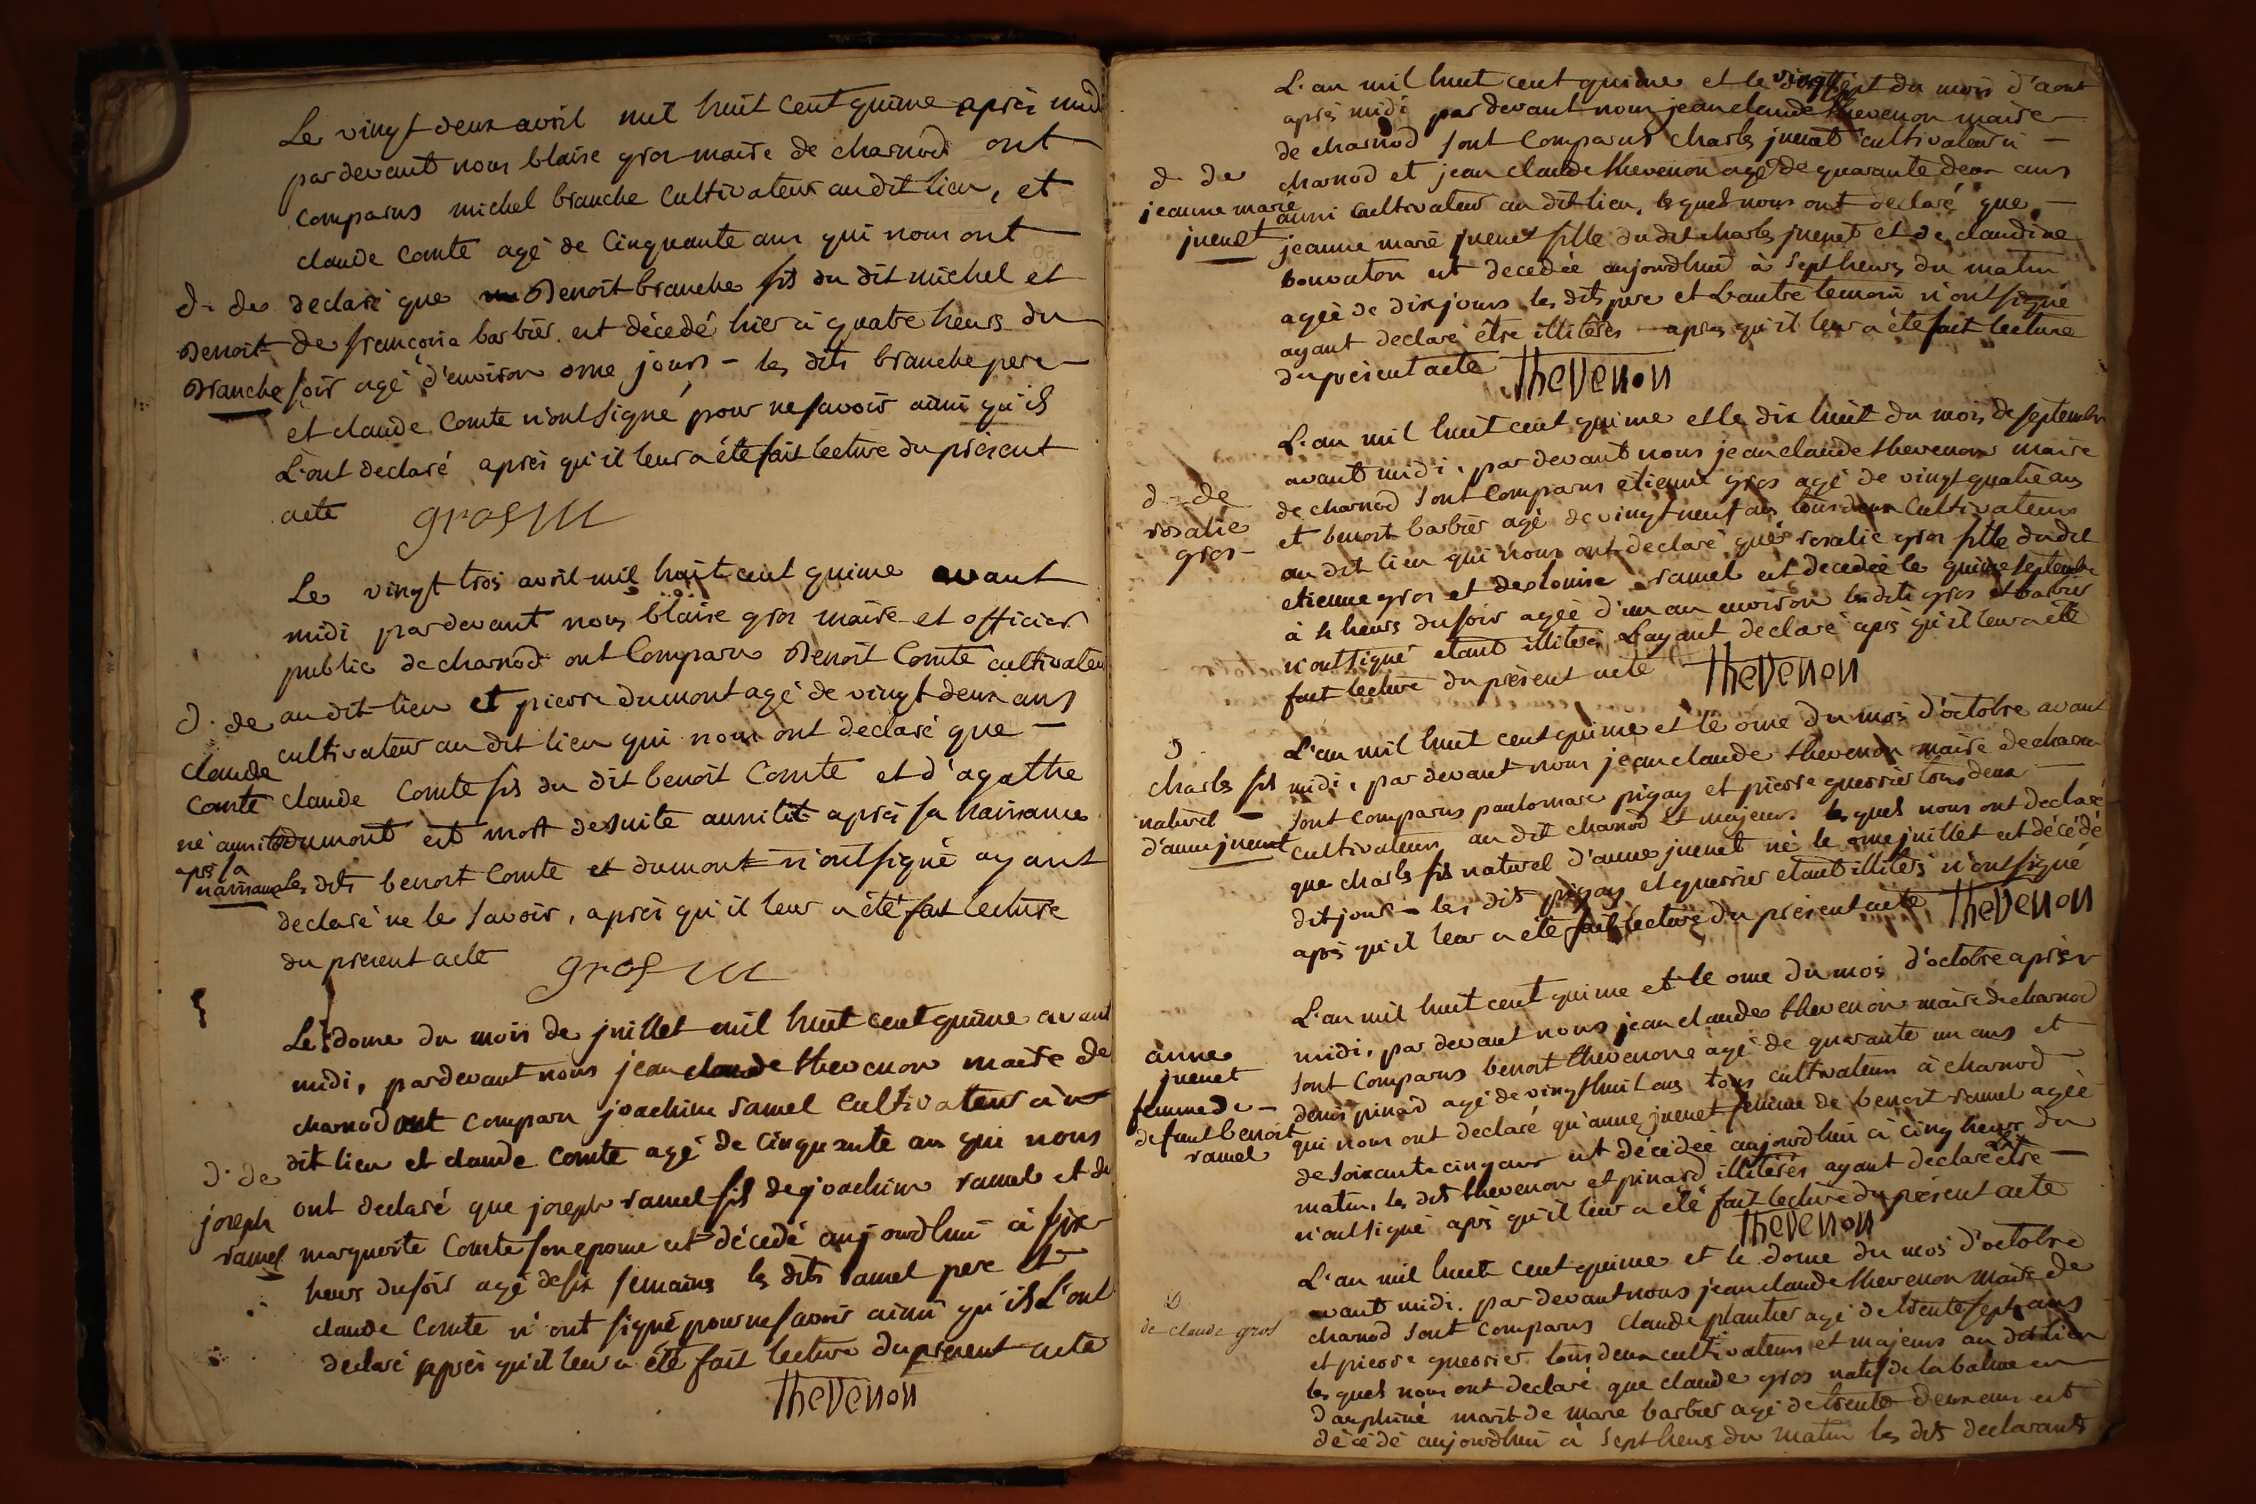 Le vingt deux avril mil huit cent quinze après midi
par devant nous blaise gros maire de charnod ont
comparus michel branche cultivateur au dit lieu, et
claude comte agé de cinquante ans qui nous ont
d. de declaré que Benoit branche fils du dit michel et
Benoit de françoise barbier est décedé hier à quatre heurs du
Branche soir agé d'environ onze jours - les dits branche pere
et claude Comte n'ont signé pour ne savoir ainsi qu'ils
L'ont declaré après qu'il leur a été fait lecture du présent
acte gros m
Le vingt trois avril mil huit cent quinze avant
midi par devant nous blaise gros maire et officier
public de charnod ont comparu Benoit Comte cultivateur
d. de au dit lieu et pierre dumont agé de vingt deux ans
cultivateur au dit lieu qui nous ont declaré que
claude
Comte claude Comte fils du dit benoit Comte et d'agathe
né aussitot dumont est mort desuite aussitôt après sa naissance
aps sa
naissance les dits benoit Comte et dumont n'ont signé ayant
declaré ne le savoir, après qu'il leur a été fait lecture
du present acte gros m
Le douze du mois de juillet mil huit cent quinze avant
midi, par devant nous jean claude thevenon maire de
charnod ont comparu joachim ramel cultivateur au
d. de dit lieu et claude Comte agé de cinquante ans qui nous
joseph ont declaré que joseph ramel fils de joachim ramel et de
ramel marguerite Comte son epouse est décedé aujourdhui à six
heurs du soir agé de six semaines les dits ramel pere et
claude Comte n'ont signé pour ne savoir ainsi qu'ils l'ont
declaré après qu'il leur a été fait lecture du present acte
Thevenon
L'an mil huit cent quinze et le du mois d'aout
après midi par devant nous jean claude thevenon maire
de charnod sont comparus charles juenet cultivateur à
d de charnod et jean claude thevenon agé de quarante deux ans
jeanne marie aussi cultivateur au dit lieu, lesquels nous ont declaré que
juenet jeanne marie juenet fille du dit charles juenet et de claudine
est decedée aujourdhui à sept heurs du matin
agée de dix jours les dits pere et l'autre temoin n'ont signé
ayant declaré être illiterés après qu'il leur a été fait lecture
du present acte Thevenon
L'an mil huit cent quinze et le dix huit du mois de septembre
avant midi, par devant nous jean claude thevenon maire
d. de de charnod sont comparus etienne gros agé de vingt quatre ans
rosalie et benoit barbier agé de vingt neuf ans tous deux cultivateurs
gros au dit lieu qui nous ont declaré que rosalie gros fille du dit
etienne gros et de louise ramel est decedée le quinze septembre
à 4 heurs du soir agée d'un an environ les dits gros et barbier
n'ont signé etant illiterés l'ayant declaré aprs qu'il leur a été
fait lecture du present acte Thevenon
d. L'an mil huit cent quinze et le onze du mois d'octobre avant
charles fils midi, par devant nous jean claude thevenon maire de charnod
naturel sont comparus paulomare pigay et pierre guerrier tous deux
d'anne juenet cultivateurs au dit charnod et majeurs lesquels nous ont declaré
que charles fils naturel d'anne juenet né le onze juillet est décédé
dit jour - les dits pigay et guerrier etant illiterés n'ont signé
après qu'il leur a été fait lecture du present acte Thevenon
L'an mil huit cent quinze et le onze du mois d'octobre après
anne midi, par devant nous jean claude thevenon maire de charnod
juenet sont comparus benoit thevenon agé de quarante un ans et
femme de denis pinard agé de vingt huit ans tous cultivateurs à charnod
defunt benoit qui nous ont declaré qu'anne juenet femme de benoit ramel agée
ramel de soixante cinq ans est décédée aujourdhui à cinq heurs du
matin, les dits thevenon et pinard illiterés ayant declaré l'être
n'ont signé aprs qu'il leur a été fait lecture du present acte
Thevenon
L'an mil huit cent quinze et le douze du mois d'octobre
avant midi. par devant nous jean claude thevenon maire de
D charnod sont comparus claude plantier agé de trente sept ans
de claude gros et pierre guerrier tous deux cultivateurs et majeurs au dit lieu
lesquels nous ont declaré que claude gros natif de la balme en
dauphiné marit de marie barbier agé de trente deux ans est
décédé aujourdhui à sept heurs du matin les dits declarants